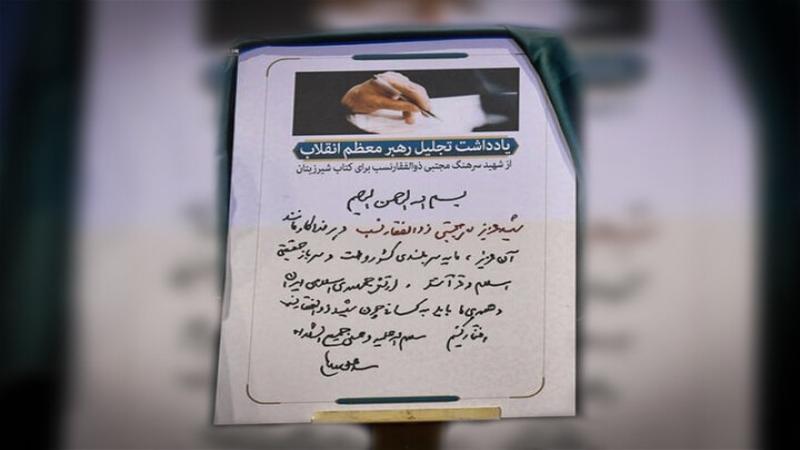 یادداشت تجلیل رهبر معظم انقلاب
از شهید سرهنگ مجتبی ذوالفقارنسب برای کتاب شیرزیتان
بسم الله الرحمن الرحیم
شهید عزیز مجتبی ذوالفقارنسب و هر فداکار مانند
آن عزیز، مایه سربلندی کشور و ملت و سرباز حقیقی
اسلام و قرآنند. ارتش جمهوری اسلامی ایران
و همه‌ی ما باید به کسانی چون شهید ذوالفقارنسب
افتخار کنیم سلام الله علیه و علی جمیع الشهداء